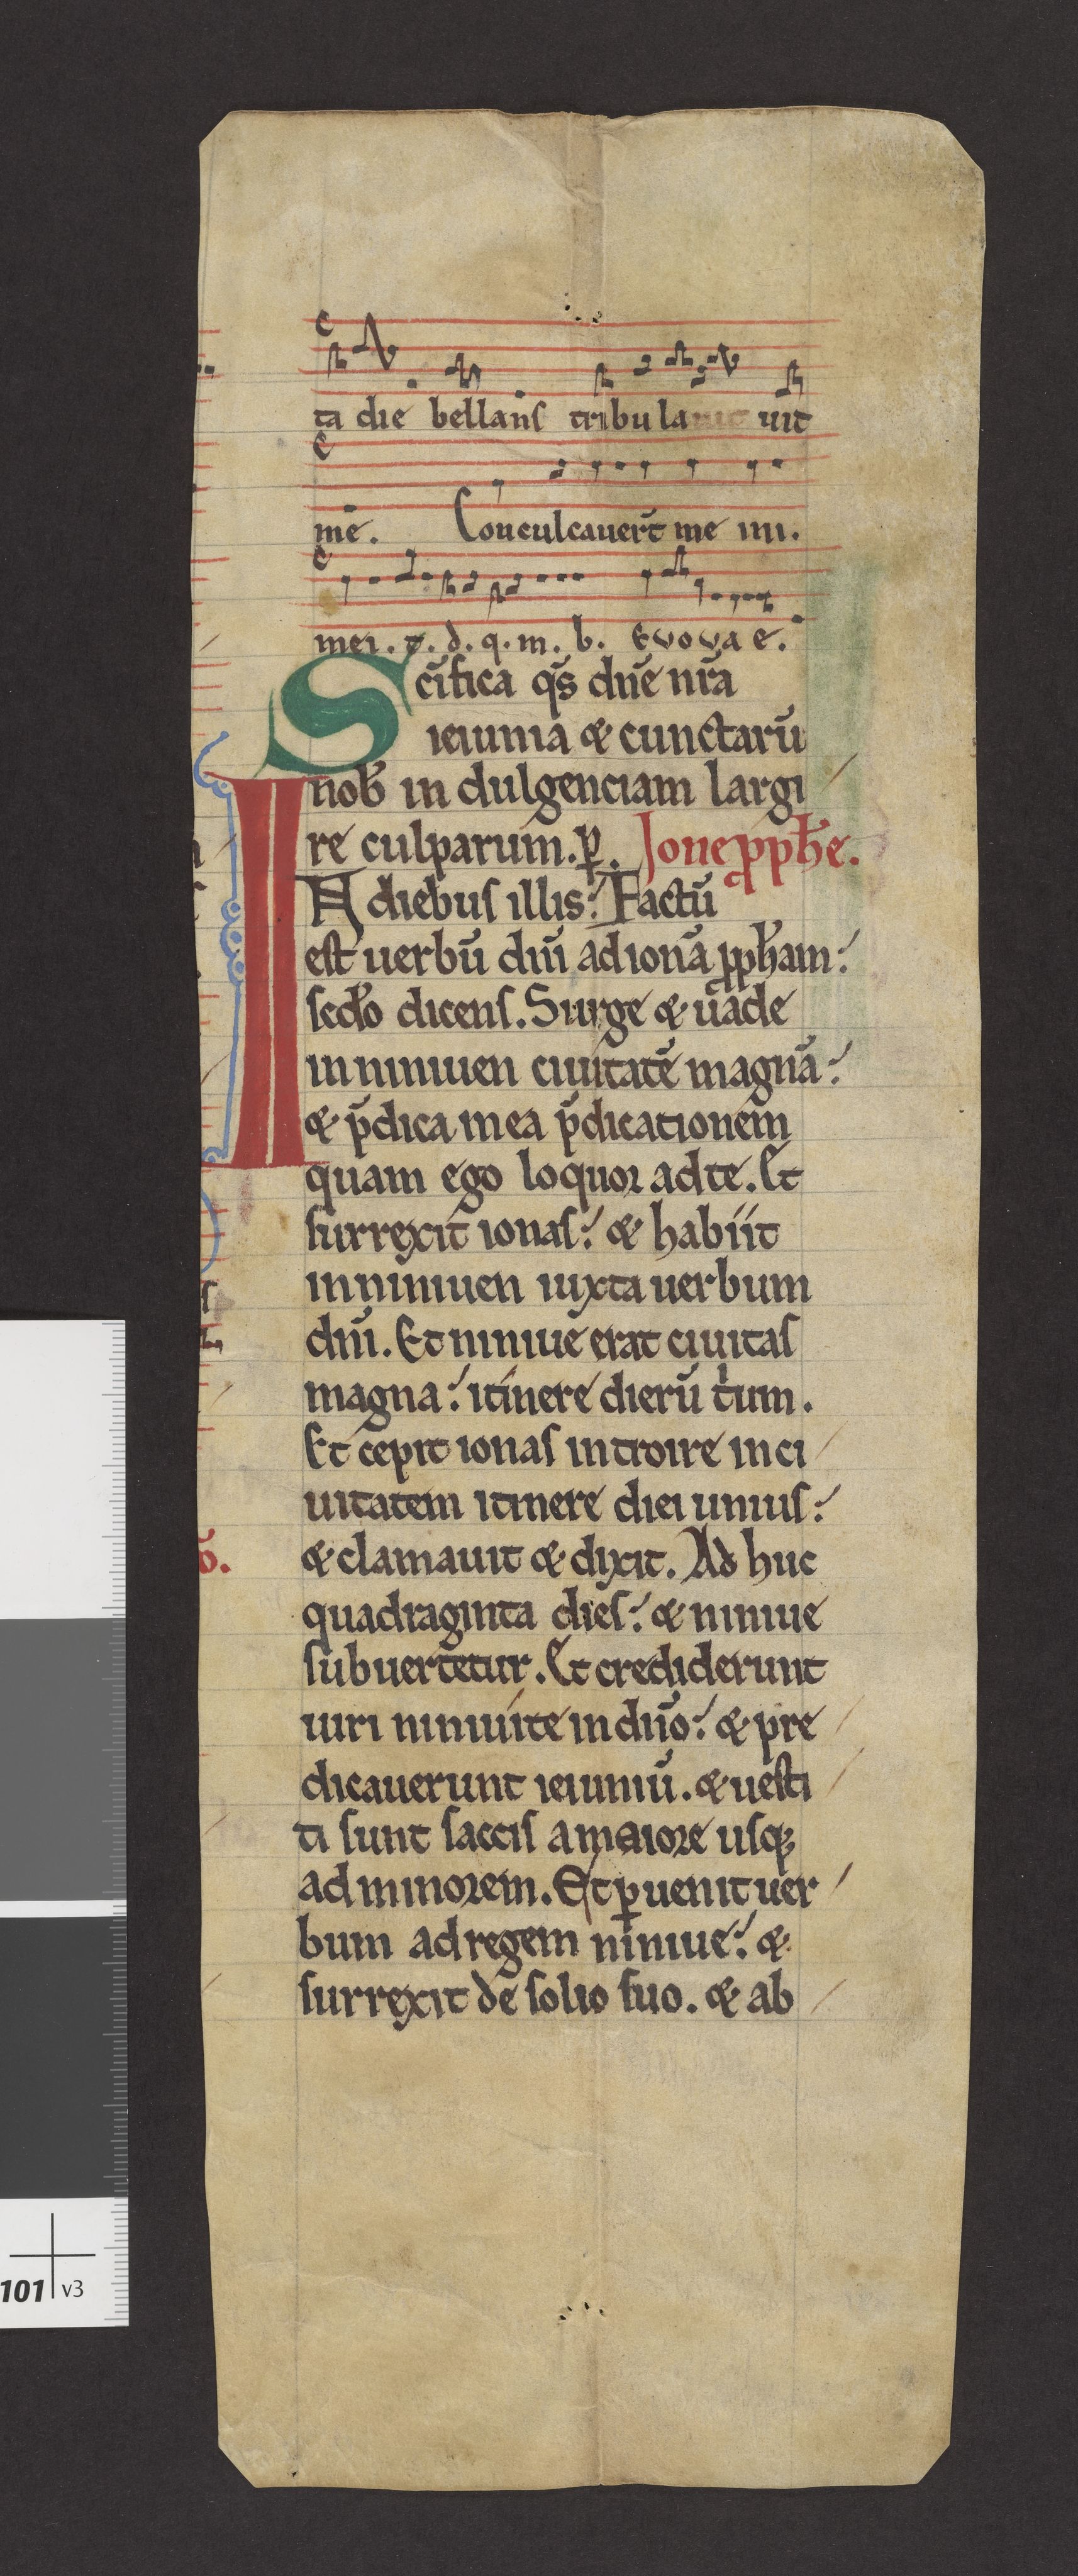 ta die bellans tribulauit uit
me. Conculcauer̄t me ini.
mei. t. d. q. m. b. Evovae.
Sc̄ifica qs̄ dn̄e nr̄a
ieiunia & cunctarū
nob̄ in dulgenciam largi
re culparum. ꝑ. Jone ꝓph̄e.
IN diebus illis: Factū
est uerbū dn̄i ad ionā ꝓph̄am:
sedo dicens. Surge & uade
in niniuen ciuitatē magnā:
& p̄dica in ea p̄dicationem
quam ego loquor ad te. Et
surrexit ionas: & habiit
in niniuen iuxta uerbum
dn̄i. Et niniue erat ciuitas
magna: itinere dierū trium.
Et cepit ionas introire in ci
uitatem itinere diei unius:
& clamauit & dixit. Ad huc
quadraginta dies: & niniue
subuertetur. Et crediderunt
uiri niniuite in dn̄o: & pre
dicauerunt ieiuniū. & uesti
ti sunt saccis a maiore usq;
ad minorem. Et ꝑuenit uer
bum ad regem niniue: &
surrexit de solio suo. & ab
101 v3